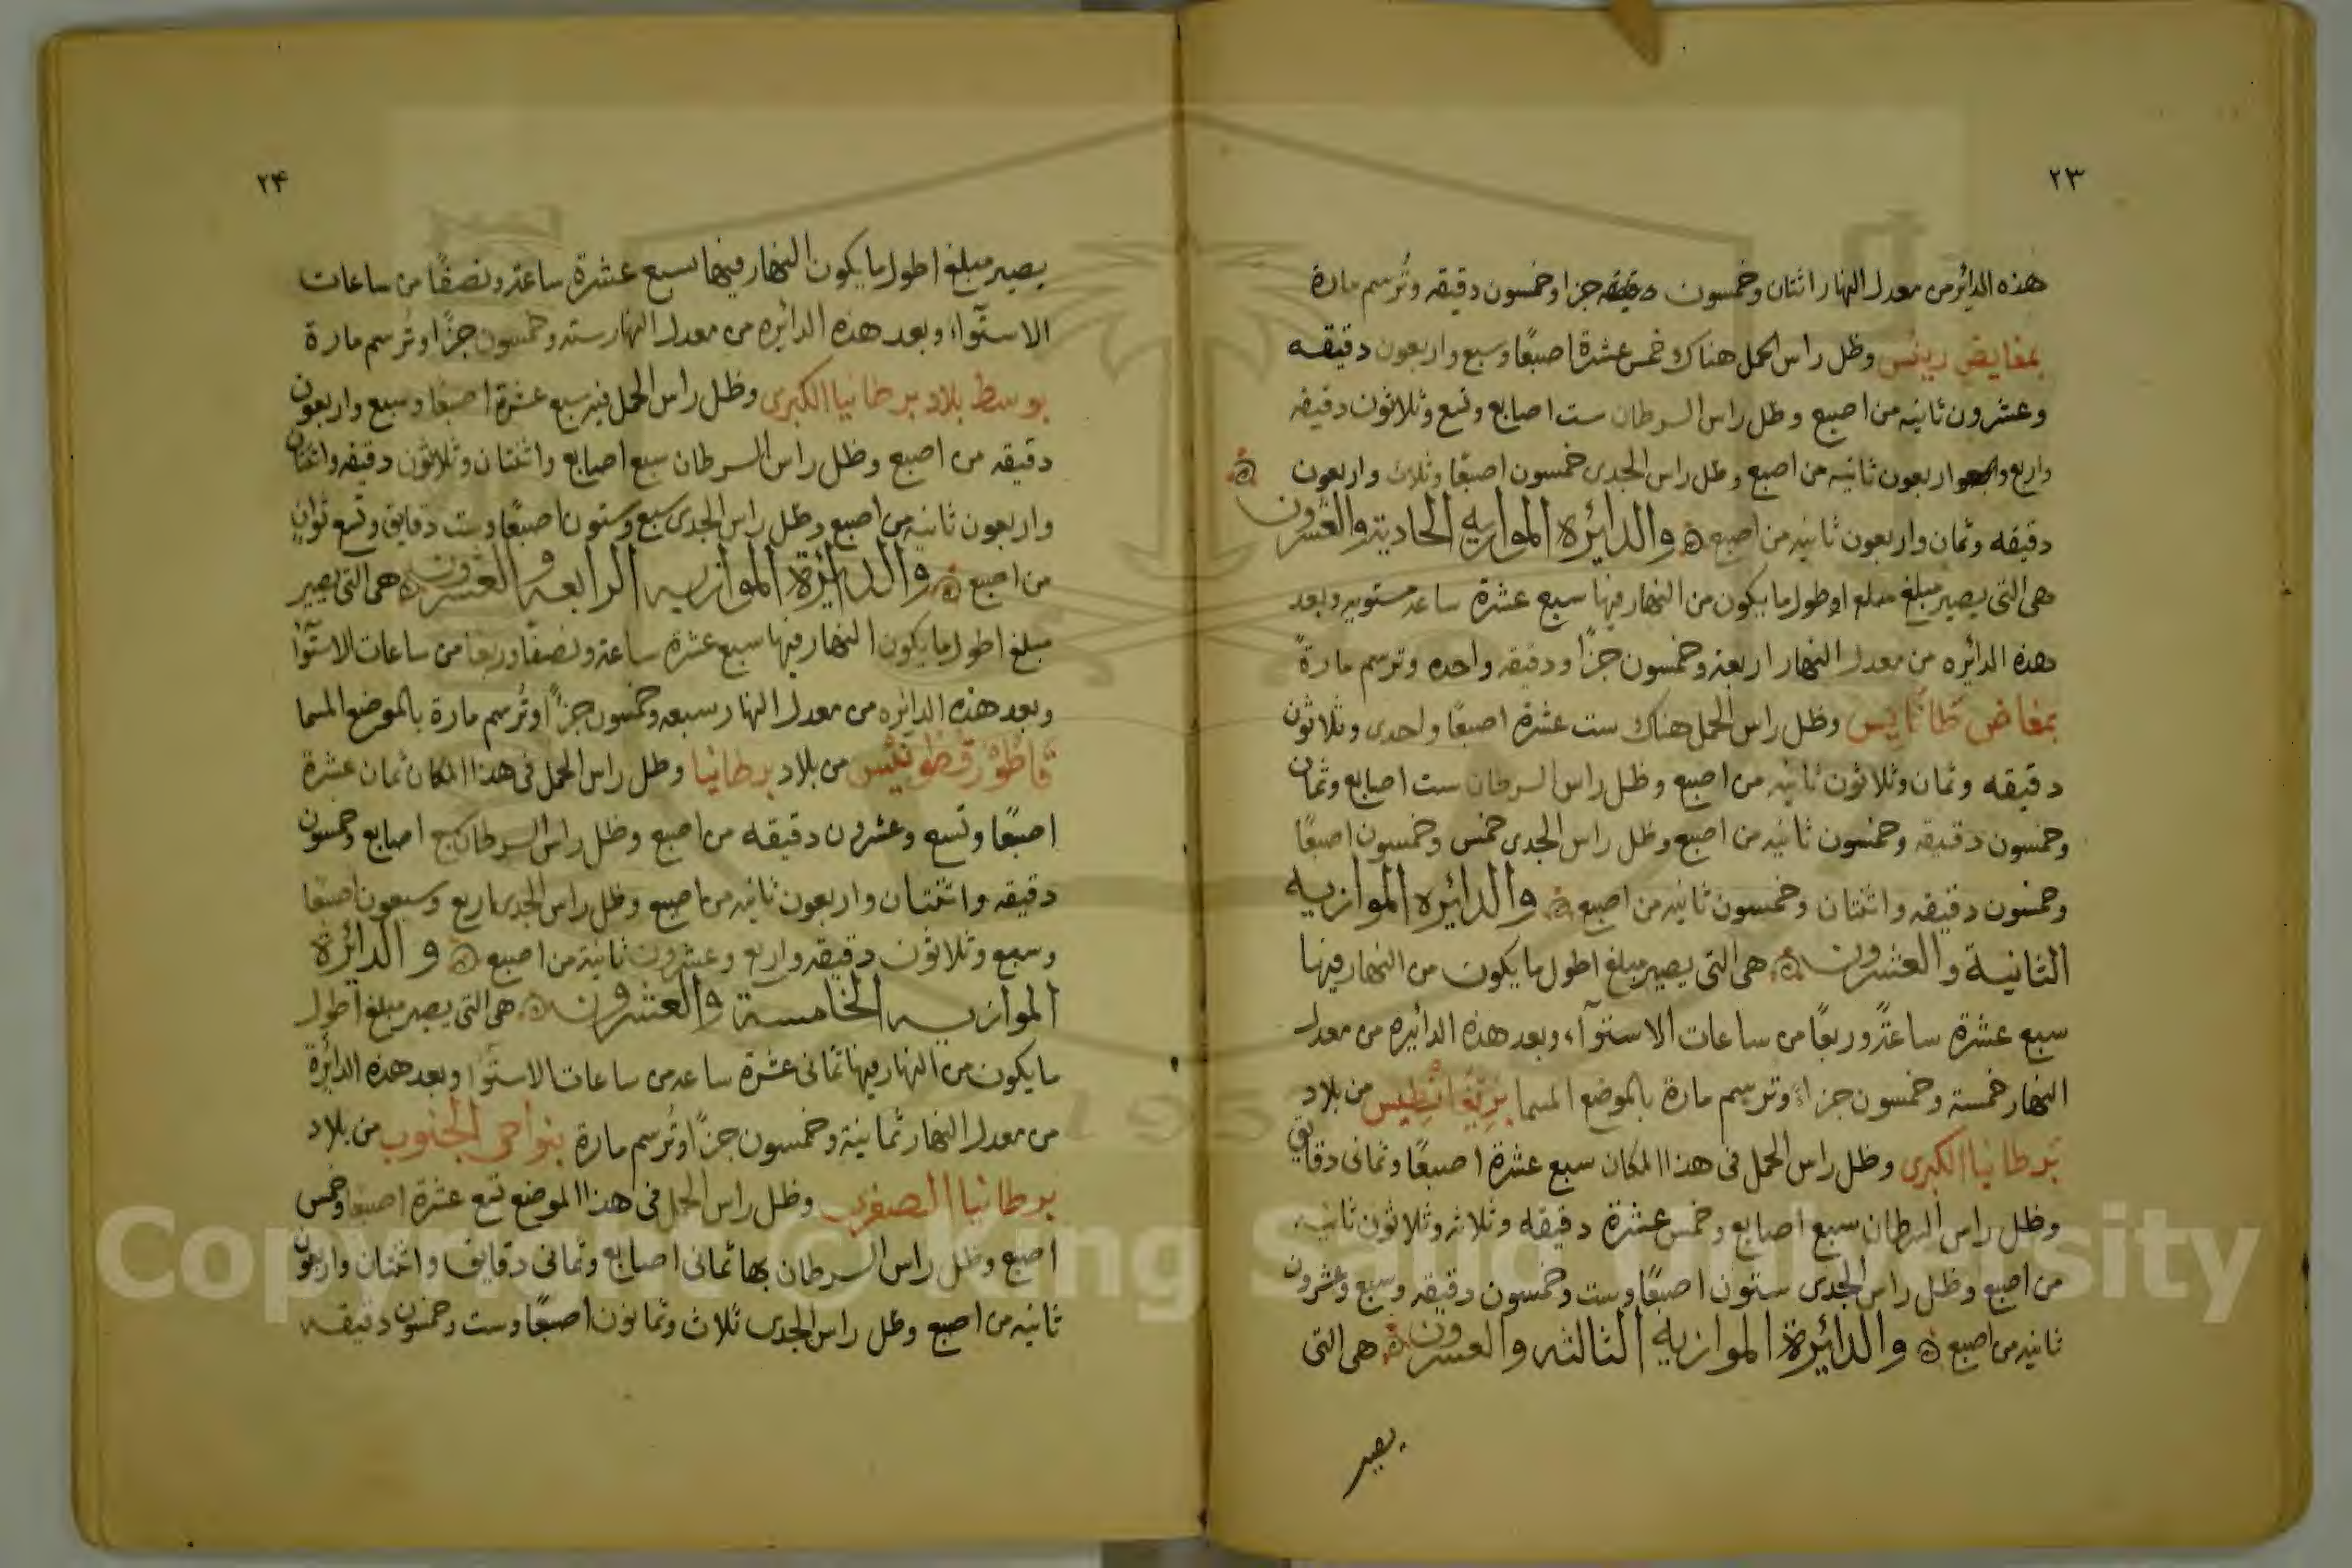 ٢٣
هذه الدائر من معدل النهار اثنتان وخمسون جزا وخمسون دقيقه وتُرسم مارة
بمغايض رينس وظل راس الحمل هناك خمس عشرة اصبعًا وسبع واربعون دقيقه
وعشرون ثانيه من اصبع وظل راس السرطان ست اصابع وتسع وثلاثون دقيقه
واربع واربعون ثانيه من اصبع وظل راس الجدى خمسون اصبعًا وثلاث واربعون
دقيقه وثمان واربعون ثانيه من اصبع والدائره الموازيه الحادية والعشرون
هى التى يصير مبلغ اطول ما يكون من النهار فيها سبع عشرة ساعه مستويه وبعد
هذه الدائره من معدل النهار اربعة وخمسون جزًا ودقيقه واحده وترسم مارةً
بمغاض طانايس وظل راس الحمل هناك ست عشرة اصبعًا واحدى وثلاثون
دقيقه وثمان وثلاثون ثانيه من اصبع وظل راس السرطان ست اصابع وثمان
وخمسون دقيقه وخمسون ثانيه من اصبع وظل راس الجدى خمس وخمسون اصبعًا
وخمسون دقيقه واثنتان وخمسون ثانيه من اصبع والدائره الموازيه
الثانية والعشرون هى التى يصير مبلغ اطول ما يكون من النهار فيها
سبع عشرة ساعةً وربعًا من ساعات الاستوآء وبعد هذه الدائيره من معدل
النهار خمسة وخمسون جزاء وترسم مارة بالموضع المسما بريغانطيس من بلاد
برطانيا الكبرى وظل راس الحمل فى هذا المكان سبع عشرة اصبعًا وثمانى دقايق
وظل راس السرطان سبع اصابع وخمس عشرة دقيقه وثلاثه وثلاثون ثانيه
من اصبع وظل راس الجدى ستون اصبعًا وست وخمسون دقيقه وسبع وعشرون
ثانيه من اصبع والدائيرة الموازيه الثالثه والعشرون هى التى
يصير
٢۴
يصير مبلغ اطول ما يكون النهار فيها سبع عشرة ساعة ونصفًا من ساعات
الاستوآء وبعد هذه الدائره من معدل النهار سته وخمسون جزًا وتُرسم مارة
بوسط بلاد برطانيا الكبرى وظل راس الحمل فيه سبع عشرة اصبعًا وسبع واربعون
دقيقه من اصبع وظل راس السرطان سبع اصابع واثنتان وثلاثون دقيقه واثنتان
واربعون ثانيه من اصبع وظل راس الجدى سبع وستون اصبعًا وست دقايق وتسع ثوانٍ
من اصبع والدائرة الموازيه الرابعه والعشرون هى التى يصير
مبلغ اطول ما يكون النهار فيها سبع عشرة ساعة ونصفًا وربعا من ساعات الاستوآ
وبعد هذه الدائره من معدل النهار سبعه وخمسون جزًا وتُرسم مارة بالموضع المسما
قاطورقطونيس من بلاد برطانيا وظل راس الحمل فى هذا المكان ثمان عشرة
اصبعًا وتسع وعشرون دقيقه من اصبع وظل راس السرطان اصابع وخمسون
دقيقه واثنتان واربعون ثانيه من اصبع وظل راس الجدى اربع وسبعون اصبعًا
وسبع وثلاثون دقيقه واربع وعشرون ثانية من اصبع والدائرة
الموازيه الخامسة والعشرون هى التى يصير مبلغ اطول
ما يكون من النهار فيها ثمانى عشرة ساعه من ساعات الاستوا وبعد هذه الدائرة
من معدل النهار ثمانية وخمسون جزًا وتُرسم مارة بنواحى الجنوب من بلاد
برطانيا الصغرى وظل راس الحمل فى هذا الموضع تسع عشرة اصبعًا وخمس
اصبع وظل راس السرطان بها ثمانى اصابع وثمانى دقايق واثنتان واربعون
ثانيه من اصبع وظل راس الجدى ثلاث وثمانون اصبعًا وست وخمسون دقيقه
Copyright © King Saud University
195